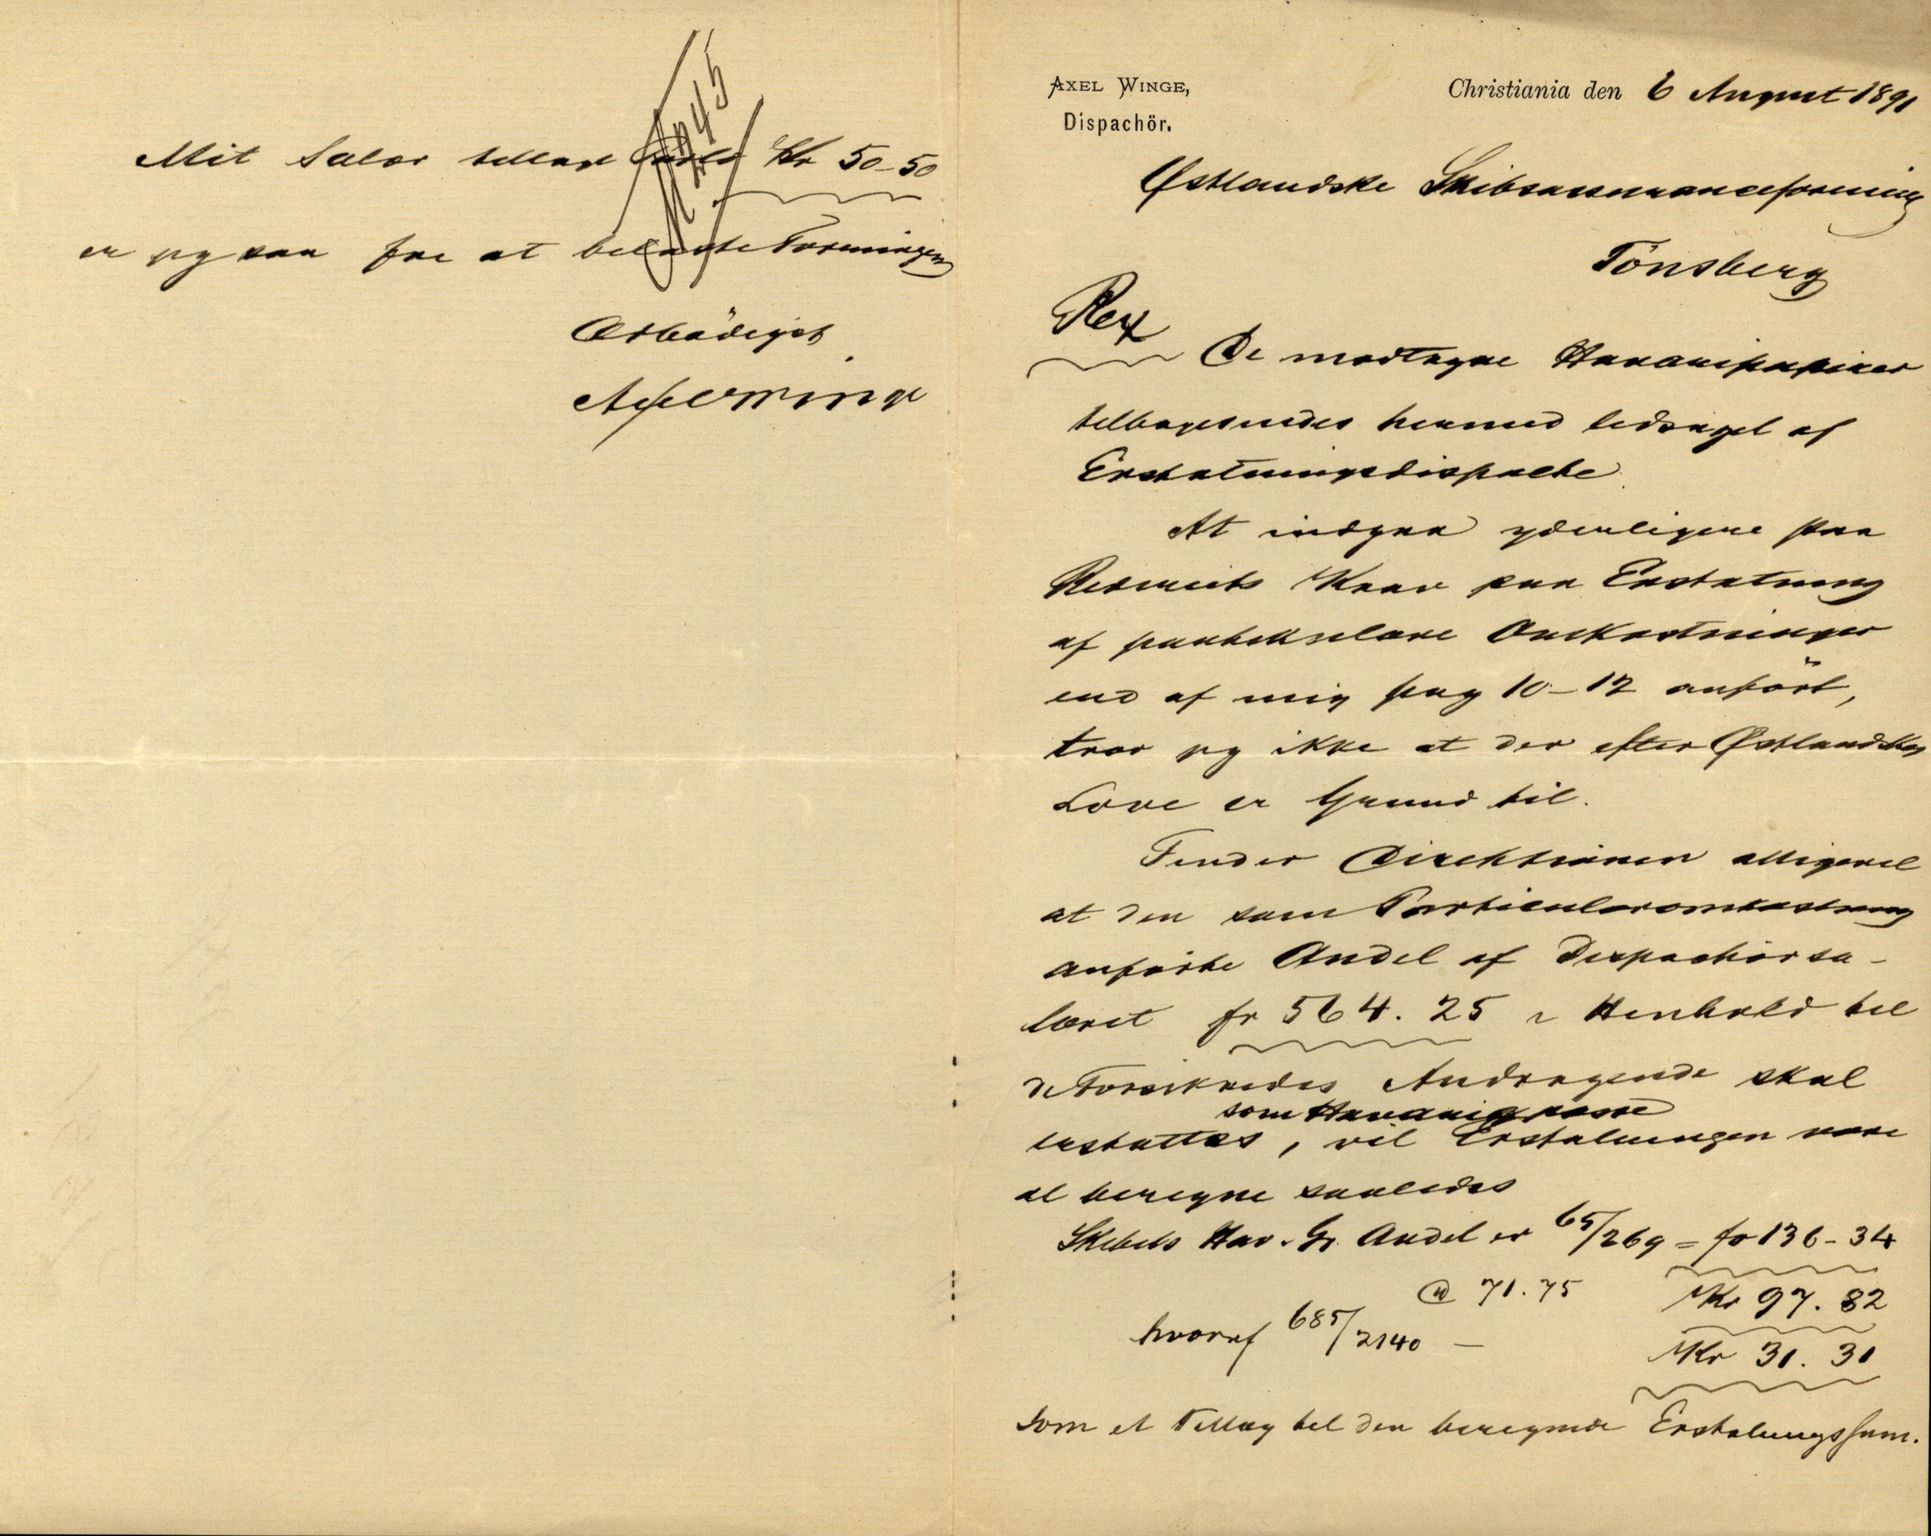 Axel Winge,
Dispachör.
Christiania den 6 August 1891
Østlandske Skibsassuranceforening
Tönsberg
Rex
De modtagne Havaripapirer
tilbagesendes hermed ledsaget af
Erstatningsdispache
At indgaa yderligere paa
Rederiets Krav paa Erstatning
af partikulære Omkostninger
end af mig pag 10-12 anfört,
tror jeg ikke at der efter Østlandskes
Love er Grund til.
Finder Direktionen alligevel
at den som Particuleromkostning
anförte Andel af Dispachörsa-
læret fr 564.25 i Henhold til
de Forsikredes Andragende skal
som Havarigrosse
erstattes, vil Erstatningen være
at beregne saaledes
Skibets Hav. Gr. Andel er 65/269 = fr 136-34
@ 71.75 Kr 97.82
hvoraf 685/2140 — Kr 31.31
som et Tillæg til den beregnede Erstatningssum.
Mit Salær tillagt Kr 50-50
er jeg saa fri at belaste Foreningen
Ærbödigst
Axel Winge